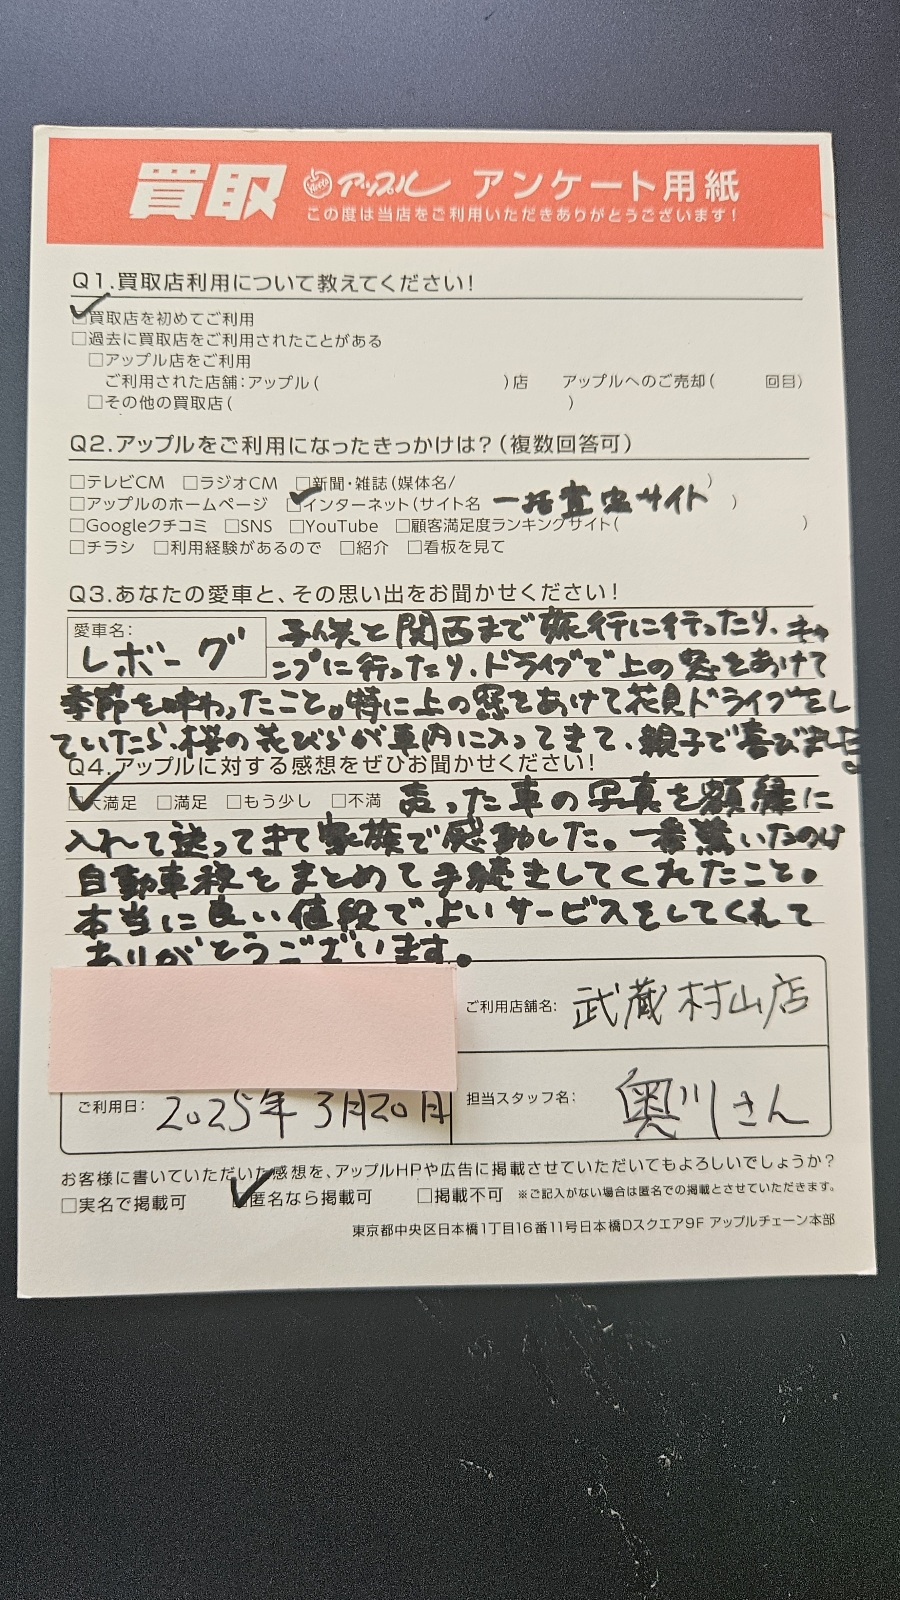 買取 アップル アンケート用紙
この度は当店をご利用いただきありがとうございます！
Q1.買取店利用について教えてください！
☑買取店を初めてご利用
□過去に買取店をご利用されたことがある
□アップル店をご利用
ご利用された店舗：アップル（ ）店 アップルへのご売却（ 回目）
□その他の買取店（ ）
Q2.アップルをご利用になったきっかけは？（複数回答可）
□テレビCM □ラジオCM □新聞・雑誌（媒体名/ ）
□アップルのホームページ ☑インターネット（サイト名 一括査定サイト ）
□Googleクチコミ □SNS □YouTube □顧客満足度ランキングサイト（ ）
□チラシ □利用経験があるので □紹介 □看板を見て
Q3.あなたの愛車と、その思い出をお聞かせください！
愛車名： レボーグ 子供と関西まで旅行に行ったり、キャ
ンプに行ったり、ドライブで上の窓をあけて
季節を味わったこと。特に上の窓をあけて花見ドライブをし
ていたら、桜の花びらが車内に入ってきて、親子で喜びました。
Q4.アップルに対する感想をぜひお聞かせください！
☑大満足 □満足 □もう少し □不満 売った車の写真を額縁に
入れて送ってきて家族で感動した。一番驚いたのは
自動車税をまとめて手続きしてくれたこと。
本当に良い値段で、よいサービスをしてくれて
ありがとうございます。
ご利用店舗名： 武蔵村山店
ご利用日： 2025年3月20日 担当スタッフ名： 奥川さん
お客様に書いていただいた感想を、アップルHPや広告に掲載させていただいてもよろしいでしょうか？
□実名で掲載可 ☑匿名なら掲載可 □掲載不可 ※ご記入がない場合は匿名での掲載とさせていただきます。
東京都中央区日本橋1丁目16番11号日本橋Dスクエア9F アップルチェーン本部